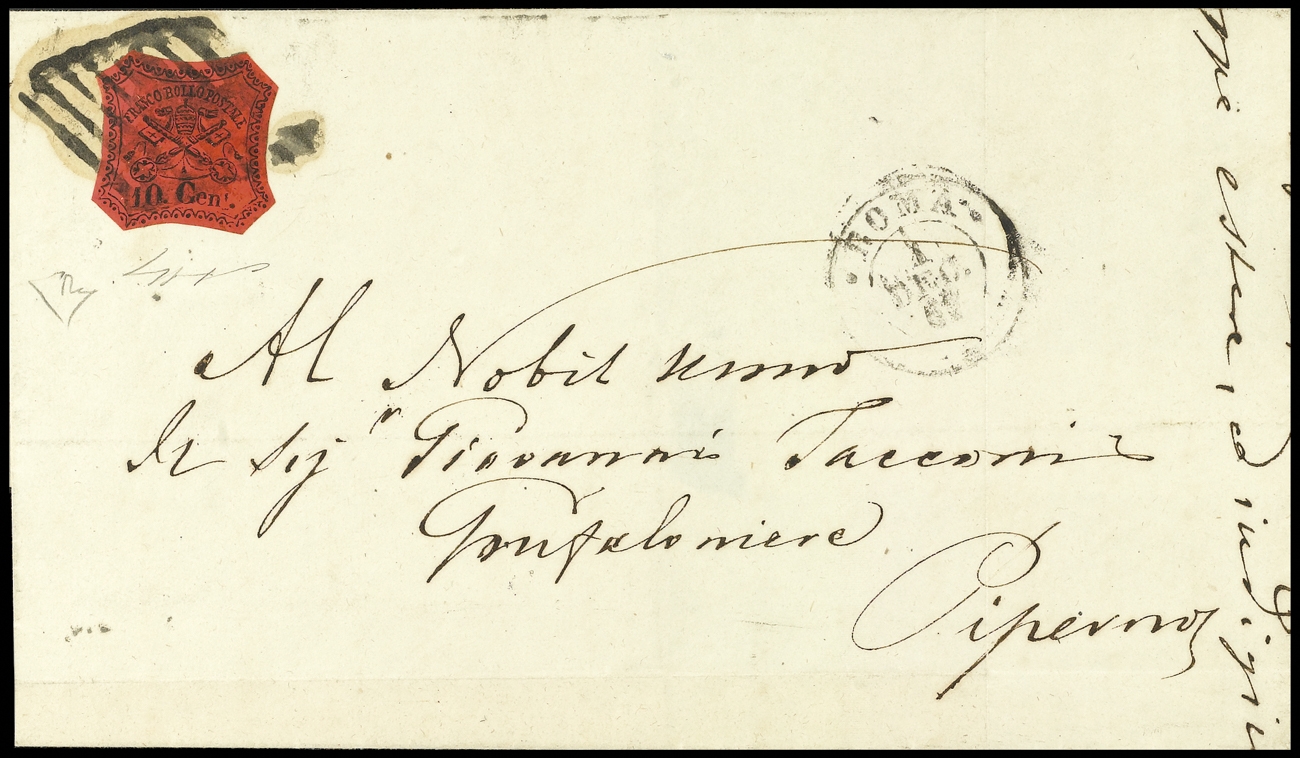 FRANCO BOLLO POSTALE
10 Cent.
ROMA
1
DEC.
67
Al Nobil Uomo
Il Sigr Giovanni Tacconi
Gonfaloniere
Piperno